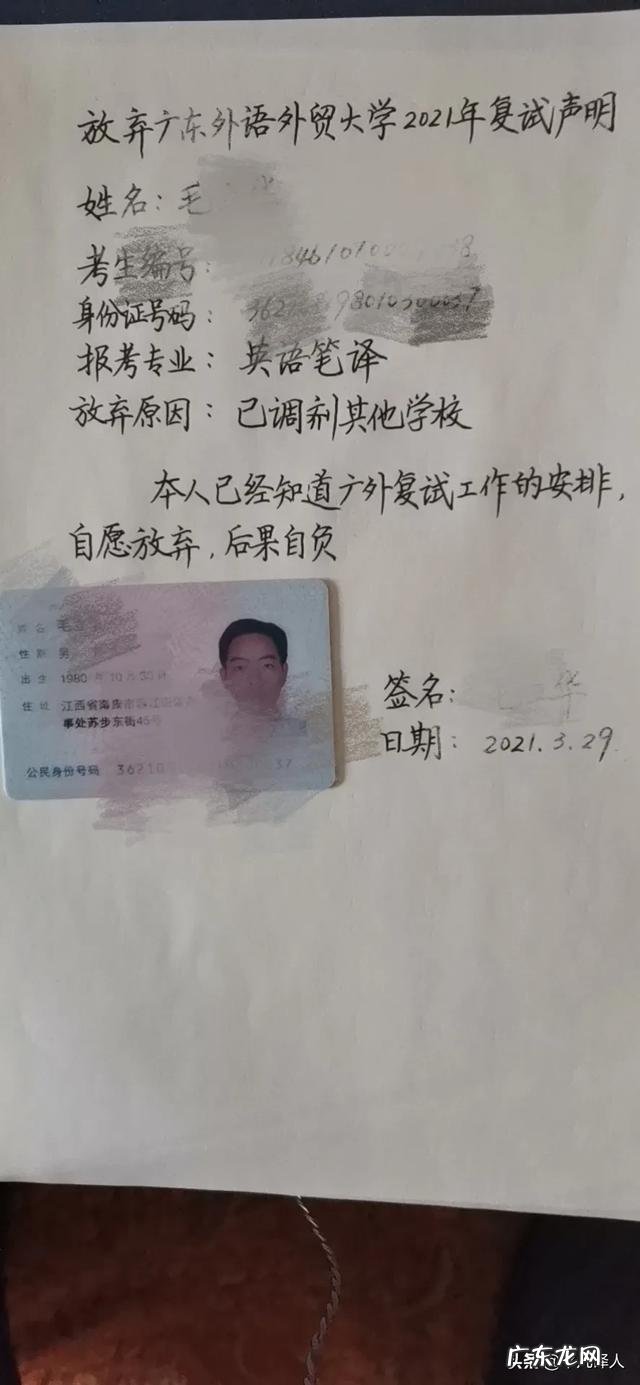 放弃广东外语外贸大学2021年复试声明
姓名：毛
考生编号：
身份证号码：
报考专业：英语笔译
放弃原因：已调剂其他学校
本人已经知道广外复试工作的安排，
自愿放弃，后果自负
姓名 毛
性别 男
出生 1980年10月30日
住址 江西省
事处苏步东街45号
公民身份号码
签名： 华
日期：2021.3.29
广东龙网